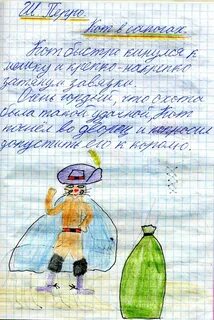 Ш. Перро.
Кот в сапогах.
Кот быстро кинулся к
мешку и крепко-накрепко
затянул завязки.
Очень гордый, что охота
была такой удачной, Кот
пошел во дворец и попросил
допустить его к королю.